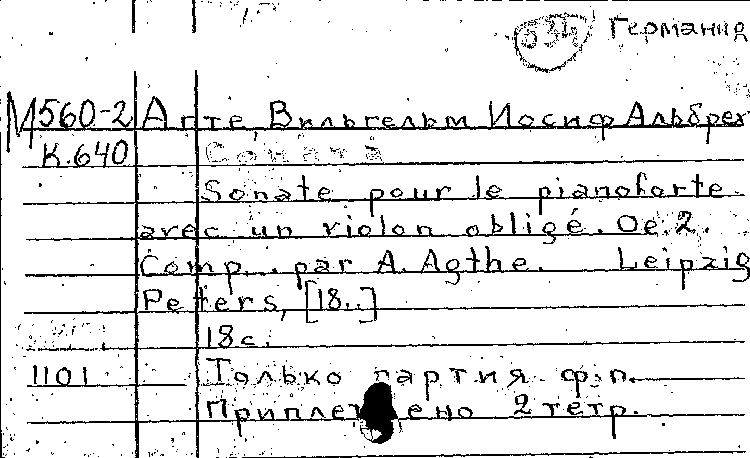 034 Германия
М560-2 Агте, Вильгельм Иосиф Альбрех
К.640 Соната
Sonate pour le pianoforte
avec un violon obligé. Oe.2.
Comp. par A. Agthe. Leipzig
Peters, [18..]
18 с.
1101 Только партия ф.п.
Приплетено 2 тетр.